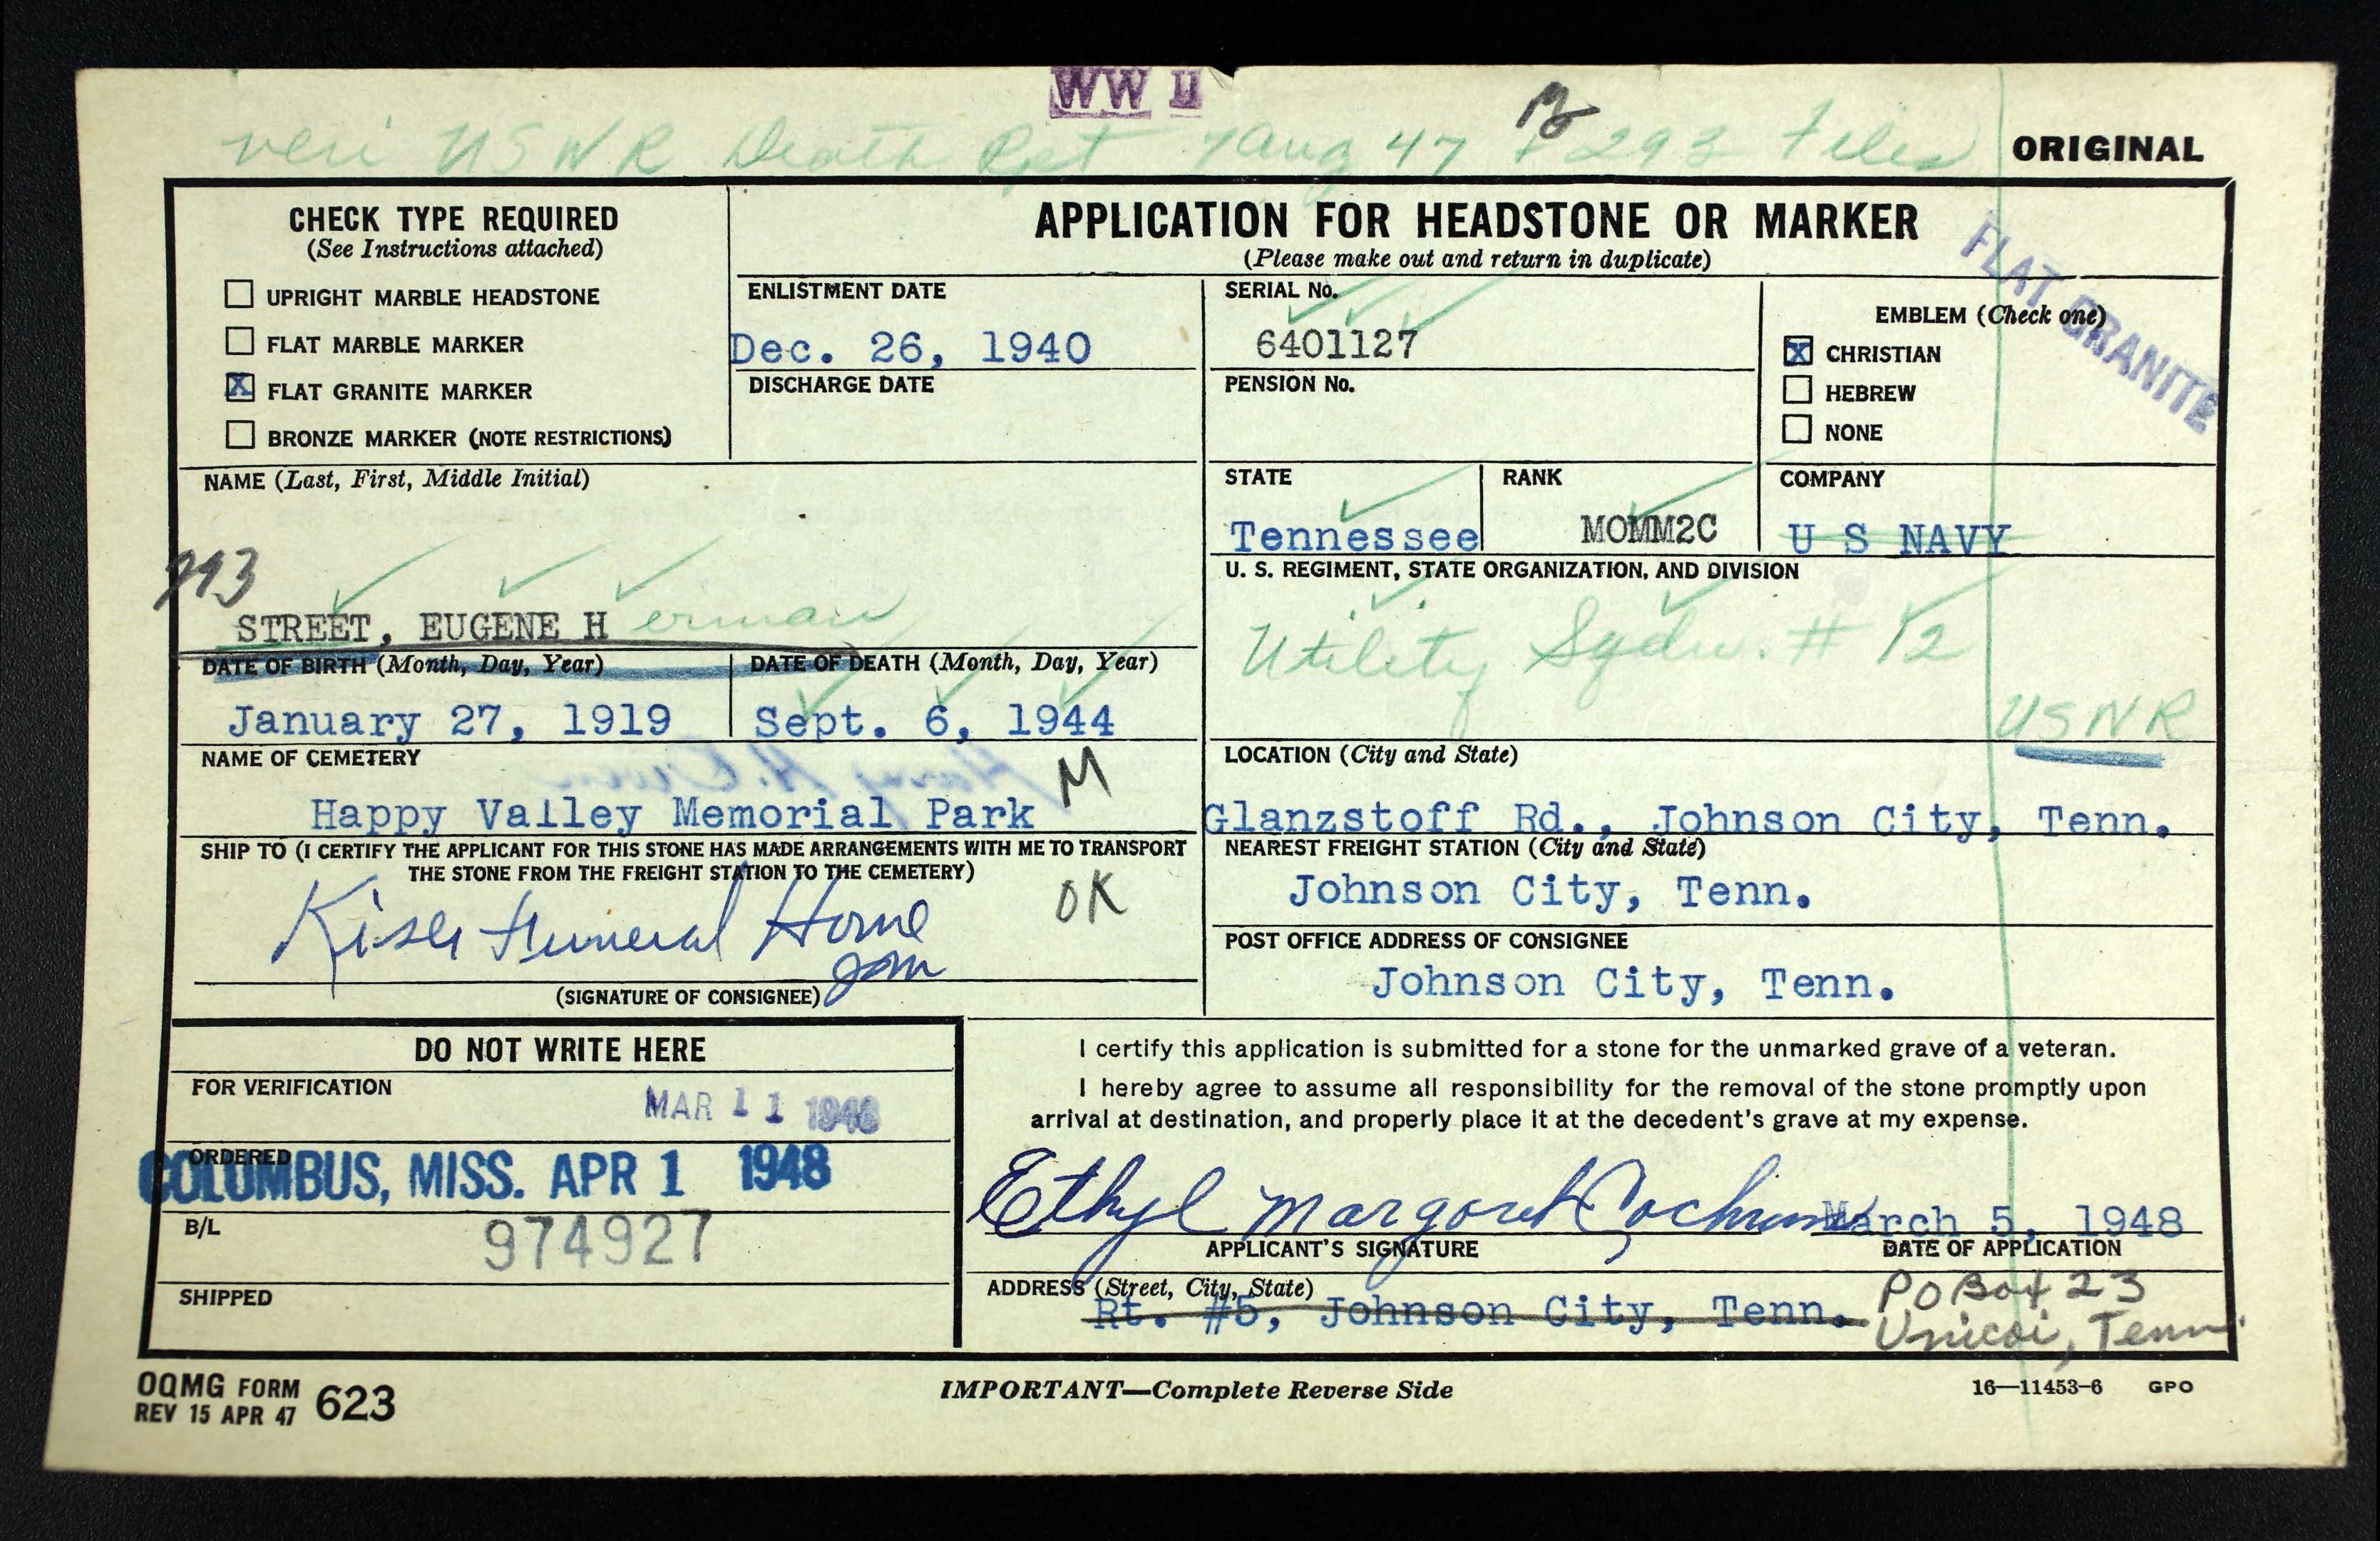 WW II
veri USNR Death Rpt 7 Aug 47 293 Files
ORIGINAL
CHECK TYPE REQUIRED
(See Instructions attached)
UPRIGHT MARBLE HEADSTONE
FLAT MARBLE MARKER
X FLAT GRANITE MARKER
BRONZE MARKER (NOTE RESTRICTIONS)
APPLICATION FOR HEADSTONE OR MARKER
(Please make out and return in duplicate)
FLAT GRANITE
ENLISTMENT DATE
Dec. 26, 1940
DISCHARGE DATE
SERIAL No.
6401127
PENSION No.
EMBLEM (Check one)
X CHRISTIAN
HEBREW
NONE
NAME (Last, First, Middle Initial)
293
STREET, EUGENE H erman
STATE
Tennessee
RANK
MOMM2C
COMPANY
U S NAVY
U. S. REGIMENT, STATE ORGANIZATION, AND DIVISION
Utility Sqdn. # 12
USNR
DATE OF BIRTH (Month, Day, Year)
January 27, 1919
DATE OF DEATH (Month, Day, Year)
Sept. 6, 1944
NAME OF CEMETERY
Happy Valley Memorial Park
M
LOCATION (City and State)
Glanzstoff Rd., Johnson City, Tenn.
SHIP TO (I CERTIFY THE APPLICANT FOR THIS STONE HAS MADE ARRANGEMENTS WITH ME TO TRANSPORT
THE STONE FROM THE FREIGHT STATION TO THE CEMETERY)
Kiser Funeral Home
OK
(SIGNATURE OF CONSIGNEE)
NEAREST FREIGHT STATION (City and State)
Johnson City, Tenn.
POST OFFICE ADDRESS OF CONSIGNEE
Johnson City, Tenn.
DO NOT WRITE HERE
FOR VERIFICATION
MAR 11 1948
ORDERED
COLUMBUS, MISS. APR 1 1948
B/L
974927
SHIPPED
I certify this application is submitted for a stone for the unmarked grave of a veteran.
I hereby agree to assume all responsibility for the removal of the stone promptly upon
arrival at destination, and properly place it at the decedent's grave at my expense.
Ethyl Margaret Cochran
March 5, 1948
APPLICANT'S SIGNATURE
DATE OF APPLICATION
ADDRESS (Street, City, State)
Rt. #5, Johnson City, Tenn.
PO Box 23
Unicoi, Tenn.
OQMG FORM 623
REV 15 APR 47
IMPORTANT—Complete Reverse Side
16—11453-6 GPO